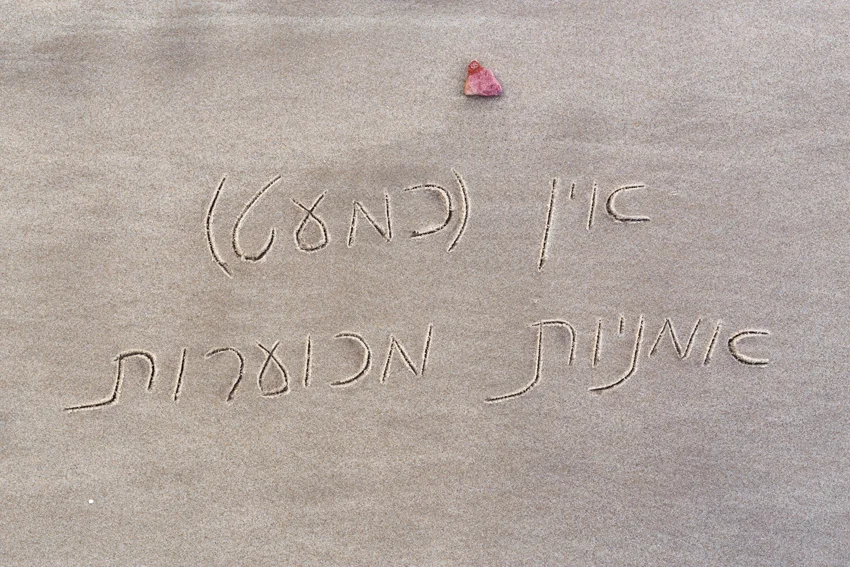 אין (כמעט)
אמניות מכוערות